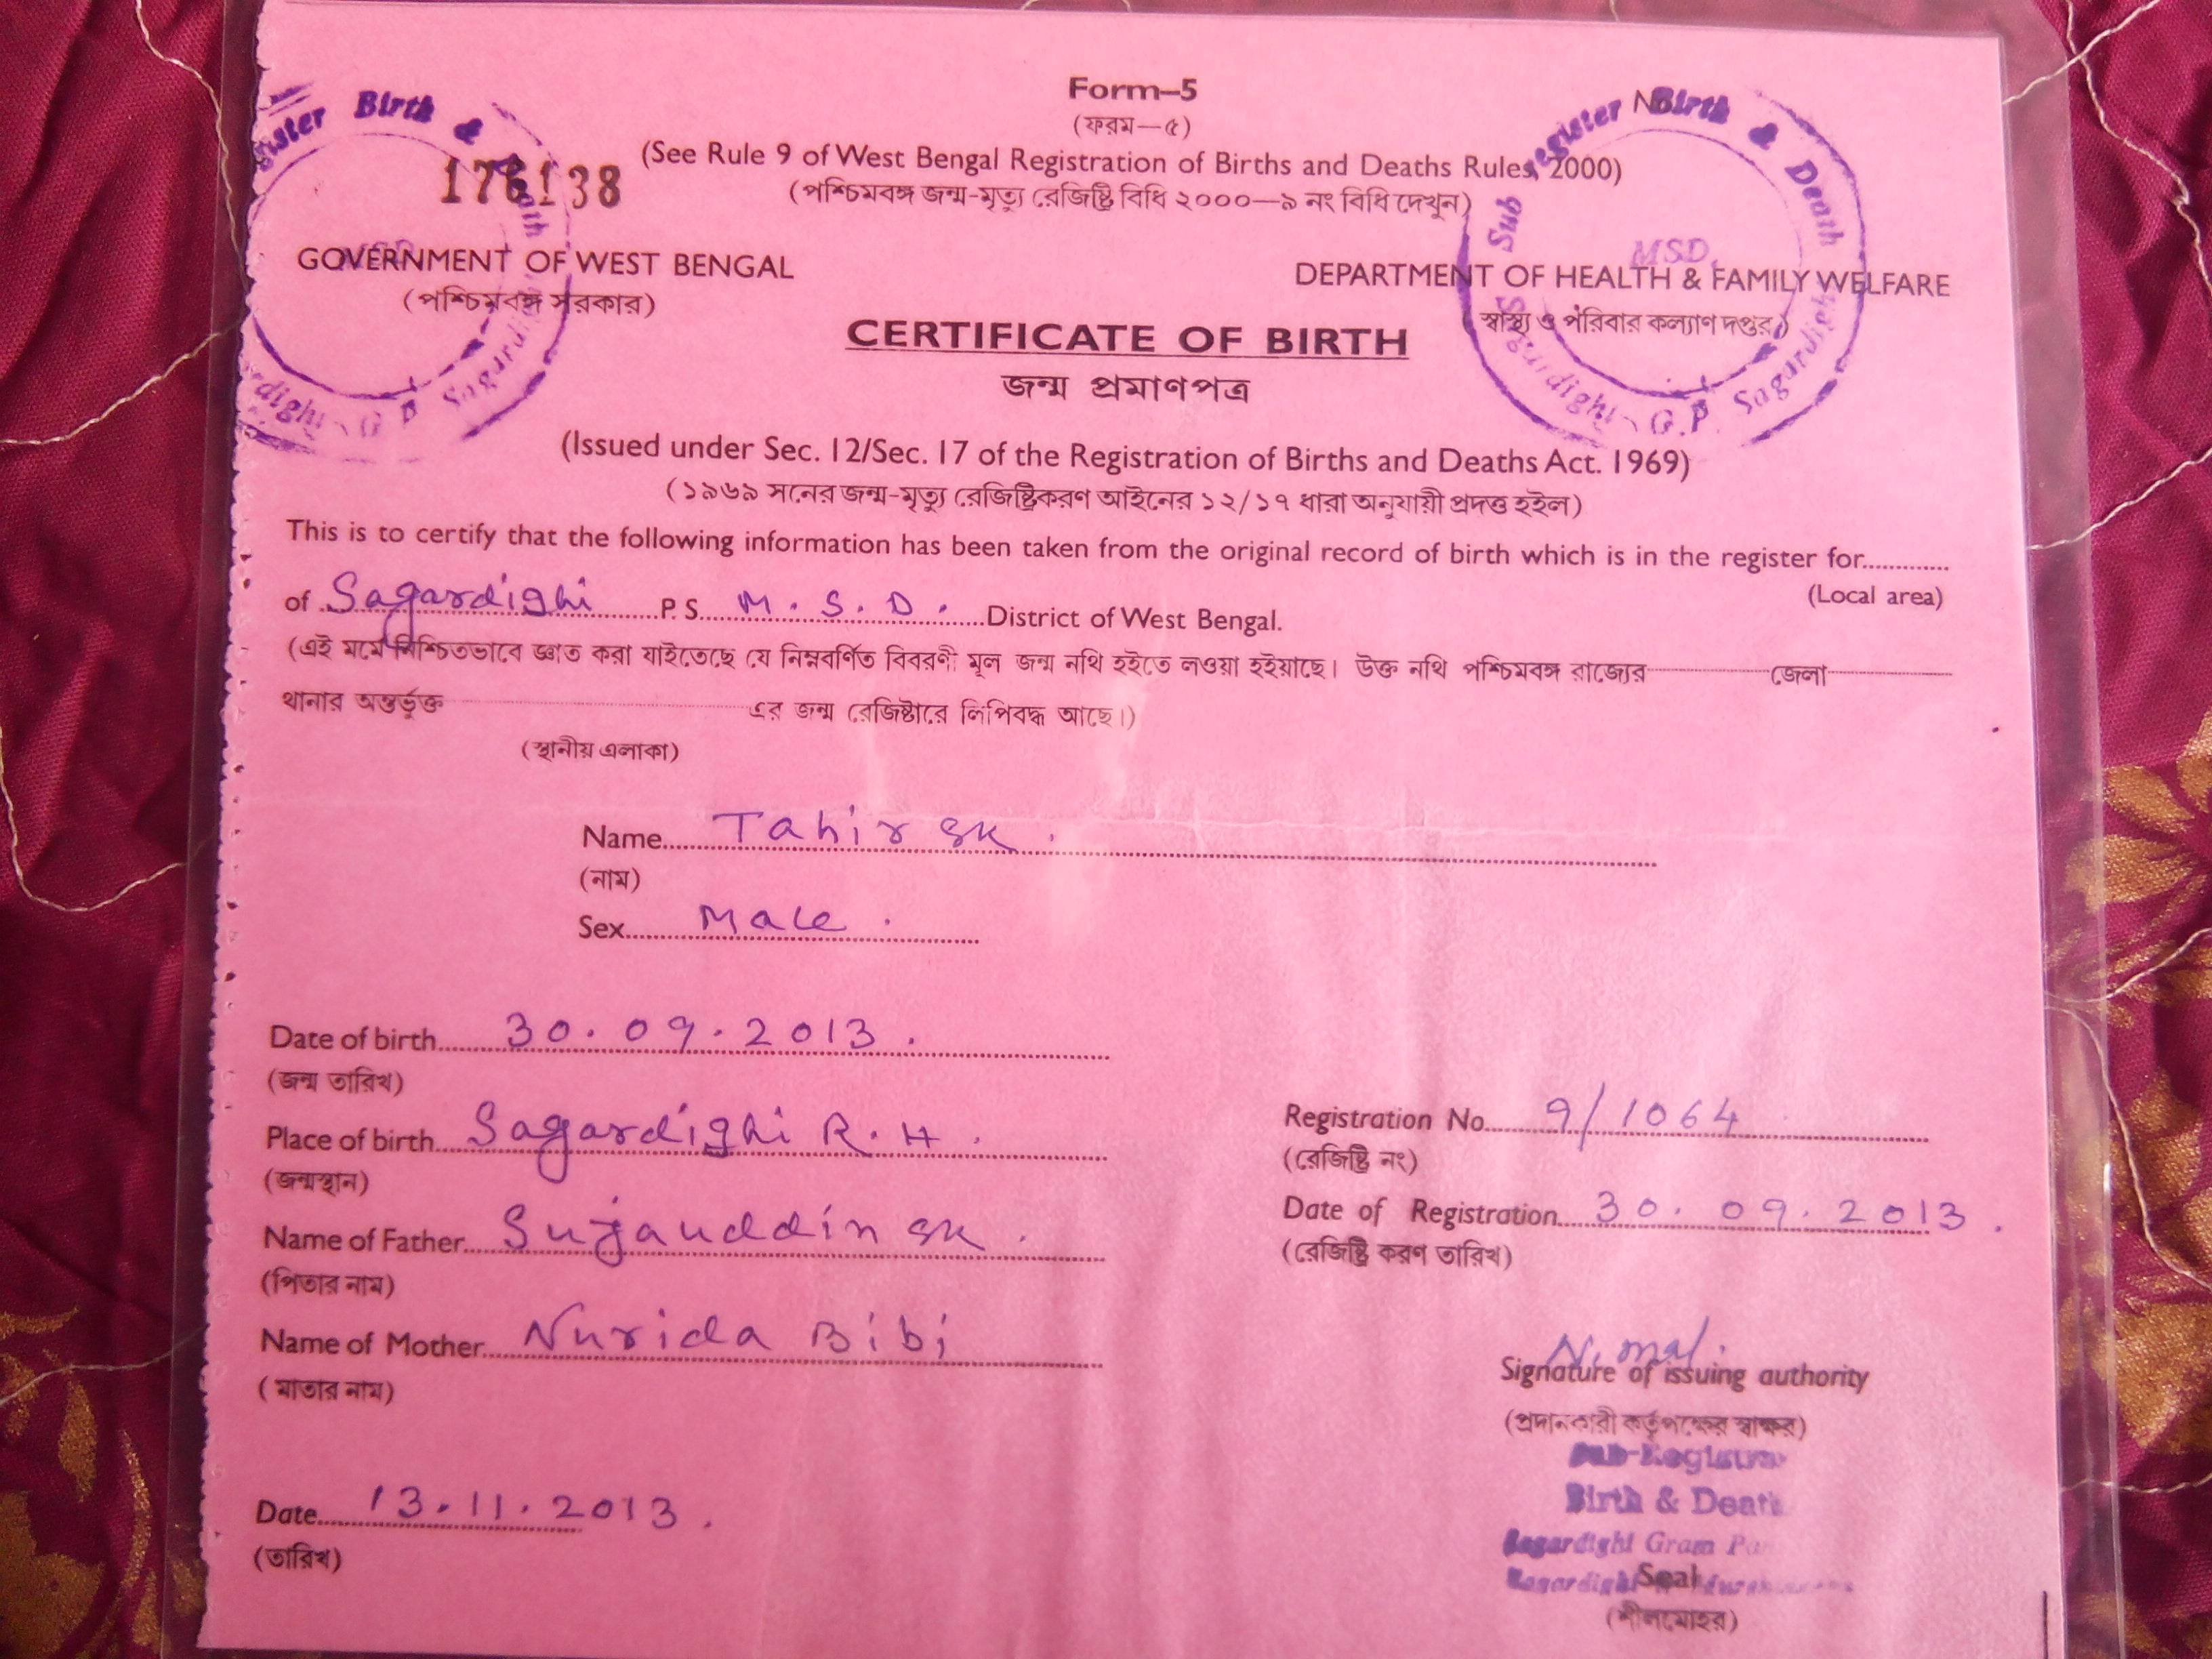 Form–5
(ফরম—৫)
(See Rule 9 of West Bengal Registration of Births and Deaths Rules, 2000)
(পশ্চিমবঙ্গ জন্ম-মৃত্যু রেজিষ্ট্রি বিধি ২০০০—৯ নং বিধি দেখুন)
Birth &
176138
Sub Register Birth & Death
MSD
Sagardighi - G.P. Sagardighi
GOVERNMENT OF WEST BENGAL
(পশ্চিমবঙ্গ সরকার)
DEPARTMENT OF HEALTH & FAMILY WELFARE
(স্বাস্থ্য ও পরিবার কল্যাণ দপ্তর)
CERTIFICATE OF BIRTH
জন্ম প্রমাণপত্র
(Issued under Sec. 12/Sec. 17 of the Registration of Births and Deaths Act. 1969)
(১৯৬৯ সনের জন্ম-মৃত্যু রেজিষ্ট্রিকরণ আইনের ১২/১৭ ধারা অনুযায়ী প্রদত্ত হইল)
This is to certify that the following information has been taken from the original record of birth which is in the register for.............
(Local area)
of Sagardighi P.S. M.S.D. District of West Bengal.
(এই মর্মে নিশ্চিতভাবে জ্ঞাত করা যাইতেছে যে নিম্নবর্ণিত বিবরণী মূল জন্ম নথি হইতে লওয়া হইয়াছে। উক্ত নথি পশ্চিমবঙ্গ রাজ্যের জেলা
থানার অন্তর্ভুক্ত এর জন্ম রেজিষ্টারে লিপিবদ্ধ আছে।)
(স্থানীয় এলাকা)
Name Tahir sk.
(নাম)
Sex Male.
Date of birth 30.09.2013.
(জন্ম তারিখ)
Place of birth Sagardighi R.H.
(জন্মস্থান)
Name of Father Sujauddin sk.
(পিতার নাম)
Name of Mother Nurida Bibi
(মাতার নাম)
Registration No 9/1064
(রেজিষ্ট্রি নং)
Date of Registration 30.09.2013.
(রেজিষ্ট্রি করণ তারিখ)
Signature of issuing authority
(প্রদানকারী কর্তৃপক্ষের স্বাক্ষর)
Sub-Registrar
Birth & Death
Sagardighi Gram
Sagardighi
Seal
(শীলমোহর)
Date 13.11.2013.
(তারিখ)